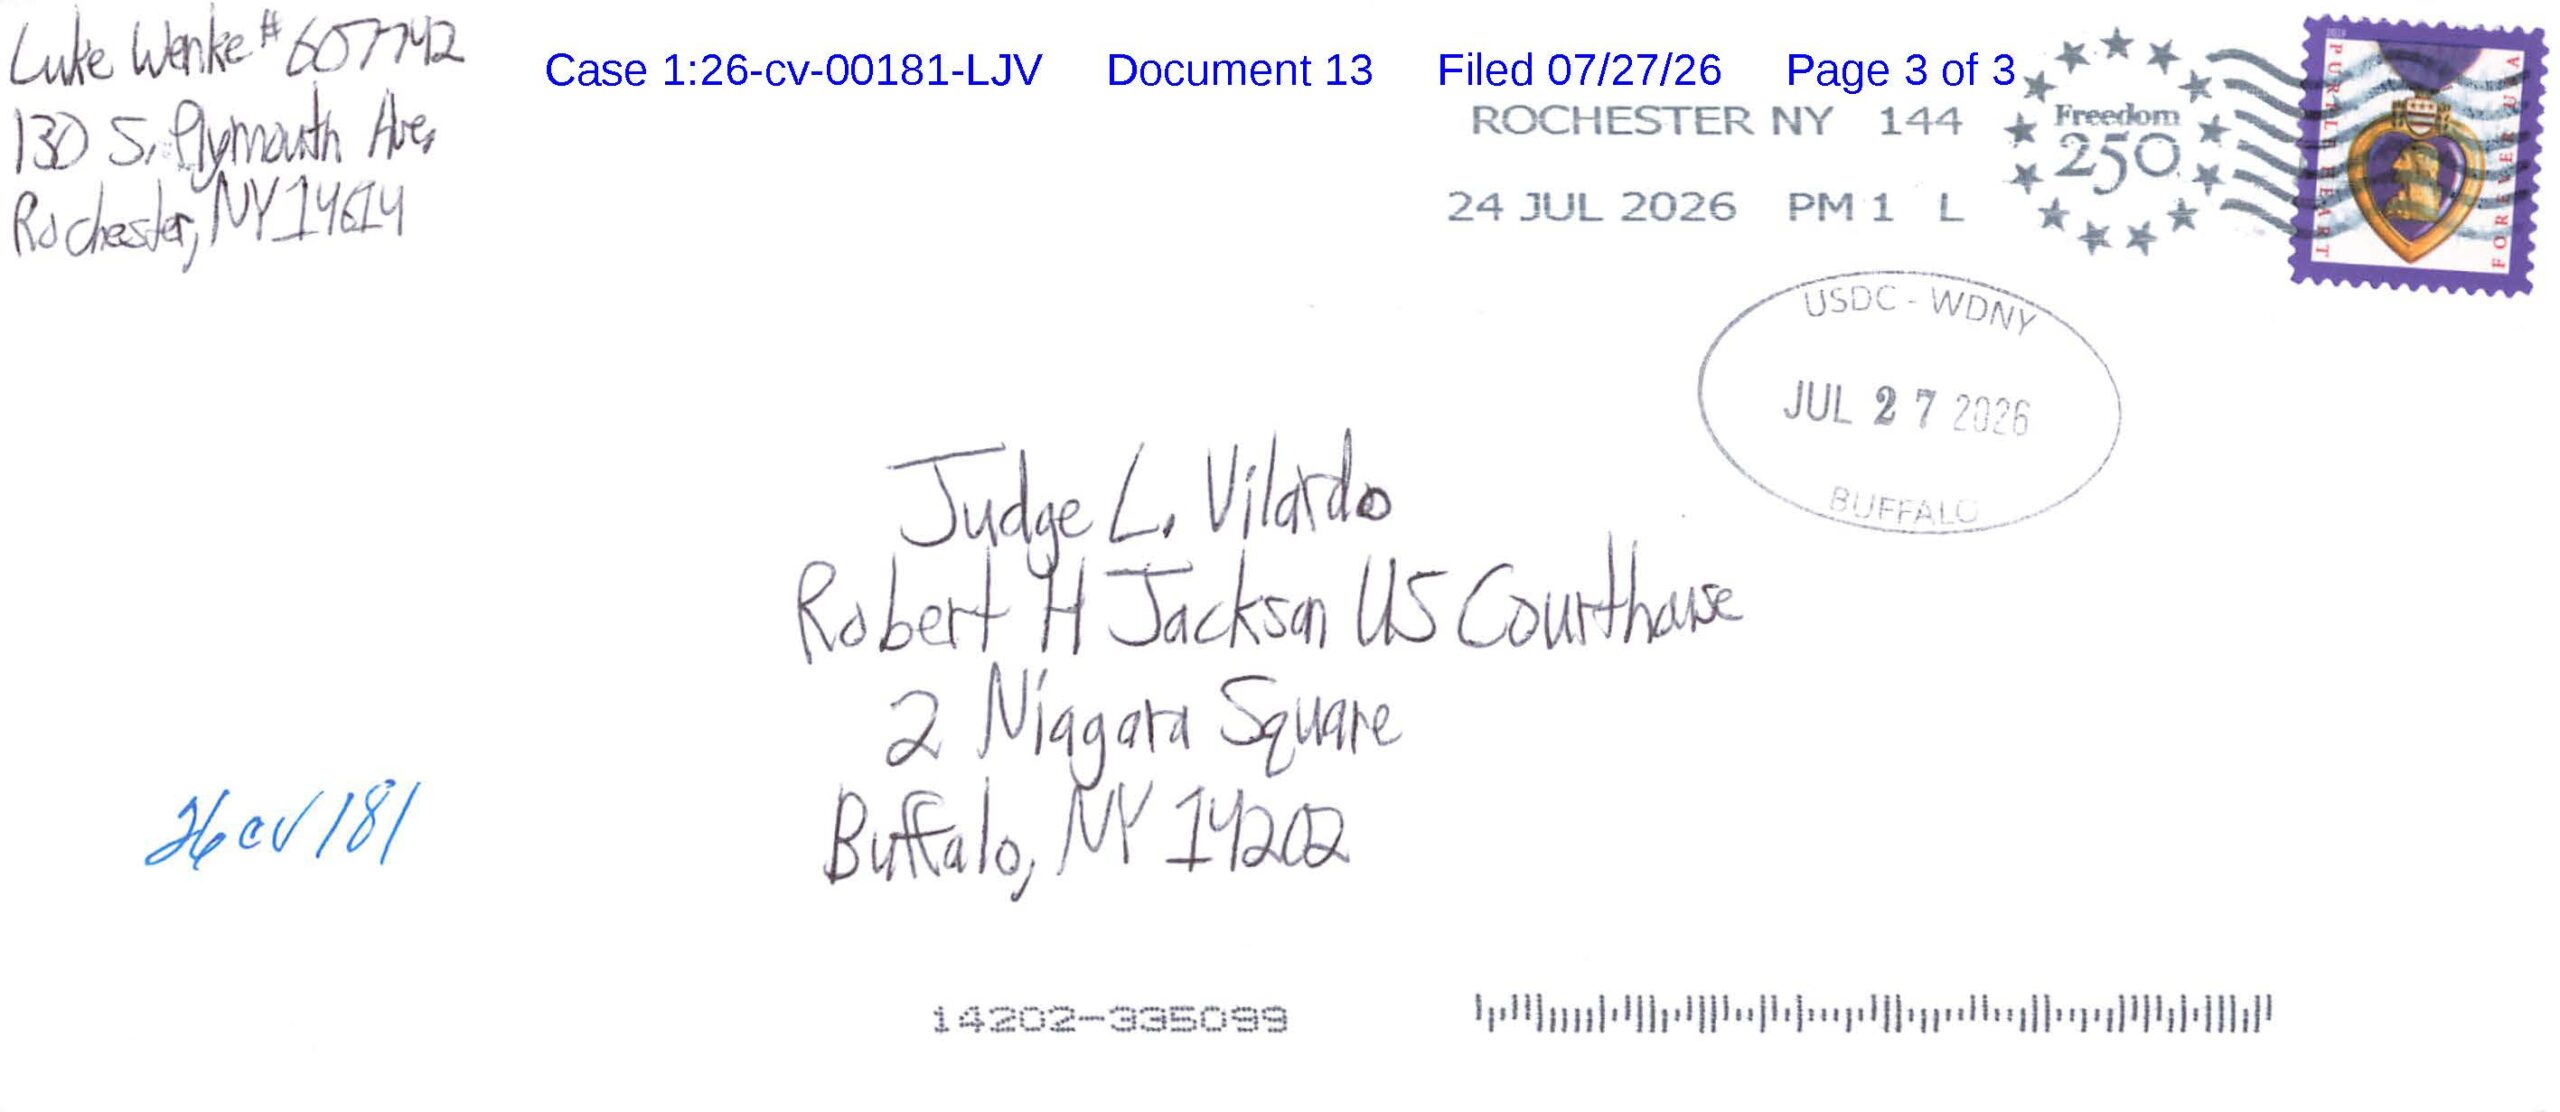 Luke Wenke #607742
130 S. Plymouth Ave,
Rochester, NY 14614
Case 1:26-cv-00181-LJV Document 13 Filed 07/27/26 Page 3 of 3
ROCHESTER NY 144
24 JUL 2026 PM 1 L
Freedom
250
2019
PURPLE HEART
FOREVER USA
USDC - WDNY
JUL 27 2026
BUFFALO
Judge L. Vilardo
Robert H Jackson US Courthouse
2 Niagara Square
Buffalo, NY 14202
26cv181
14202-335099